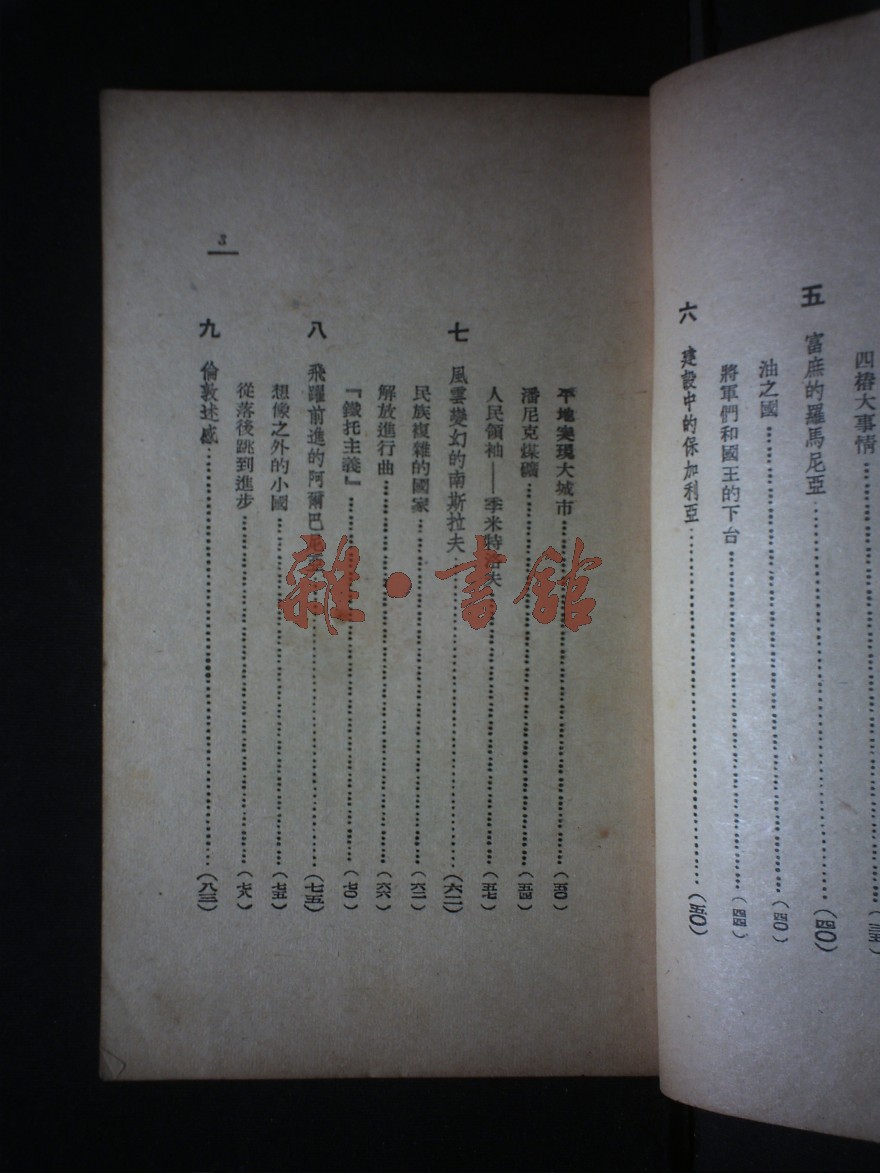 四樁大事情……(三五)
五 富庶的羅馬尼亞……(四〇)
油之國……(四〇)
將軍們和國王的下台……(四四)
六 建設中的保加利亞……(五〇)
平地突現大城市……(五〇)
潘尼克煤礦……(五四)
人民領袖——季米特洛夫……(五七)
七 風雲變幻的南斯拉夫……(六二)
民族複雜的國家……(六二)
解放進行曲……(六六)
『鐵托主義』……(七〇)
八 飛躍前進的阿爾巴尼亞……(七五)
想像之外的小國……(七五)
從落後跳到進步……(七八)
九 倫敦述感……(八三)
3
雜·書館